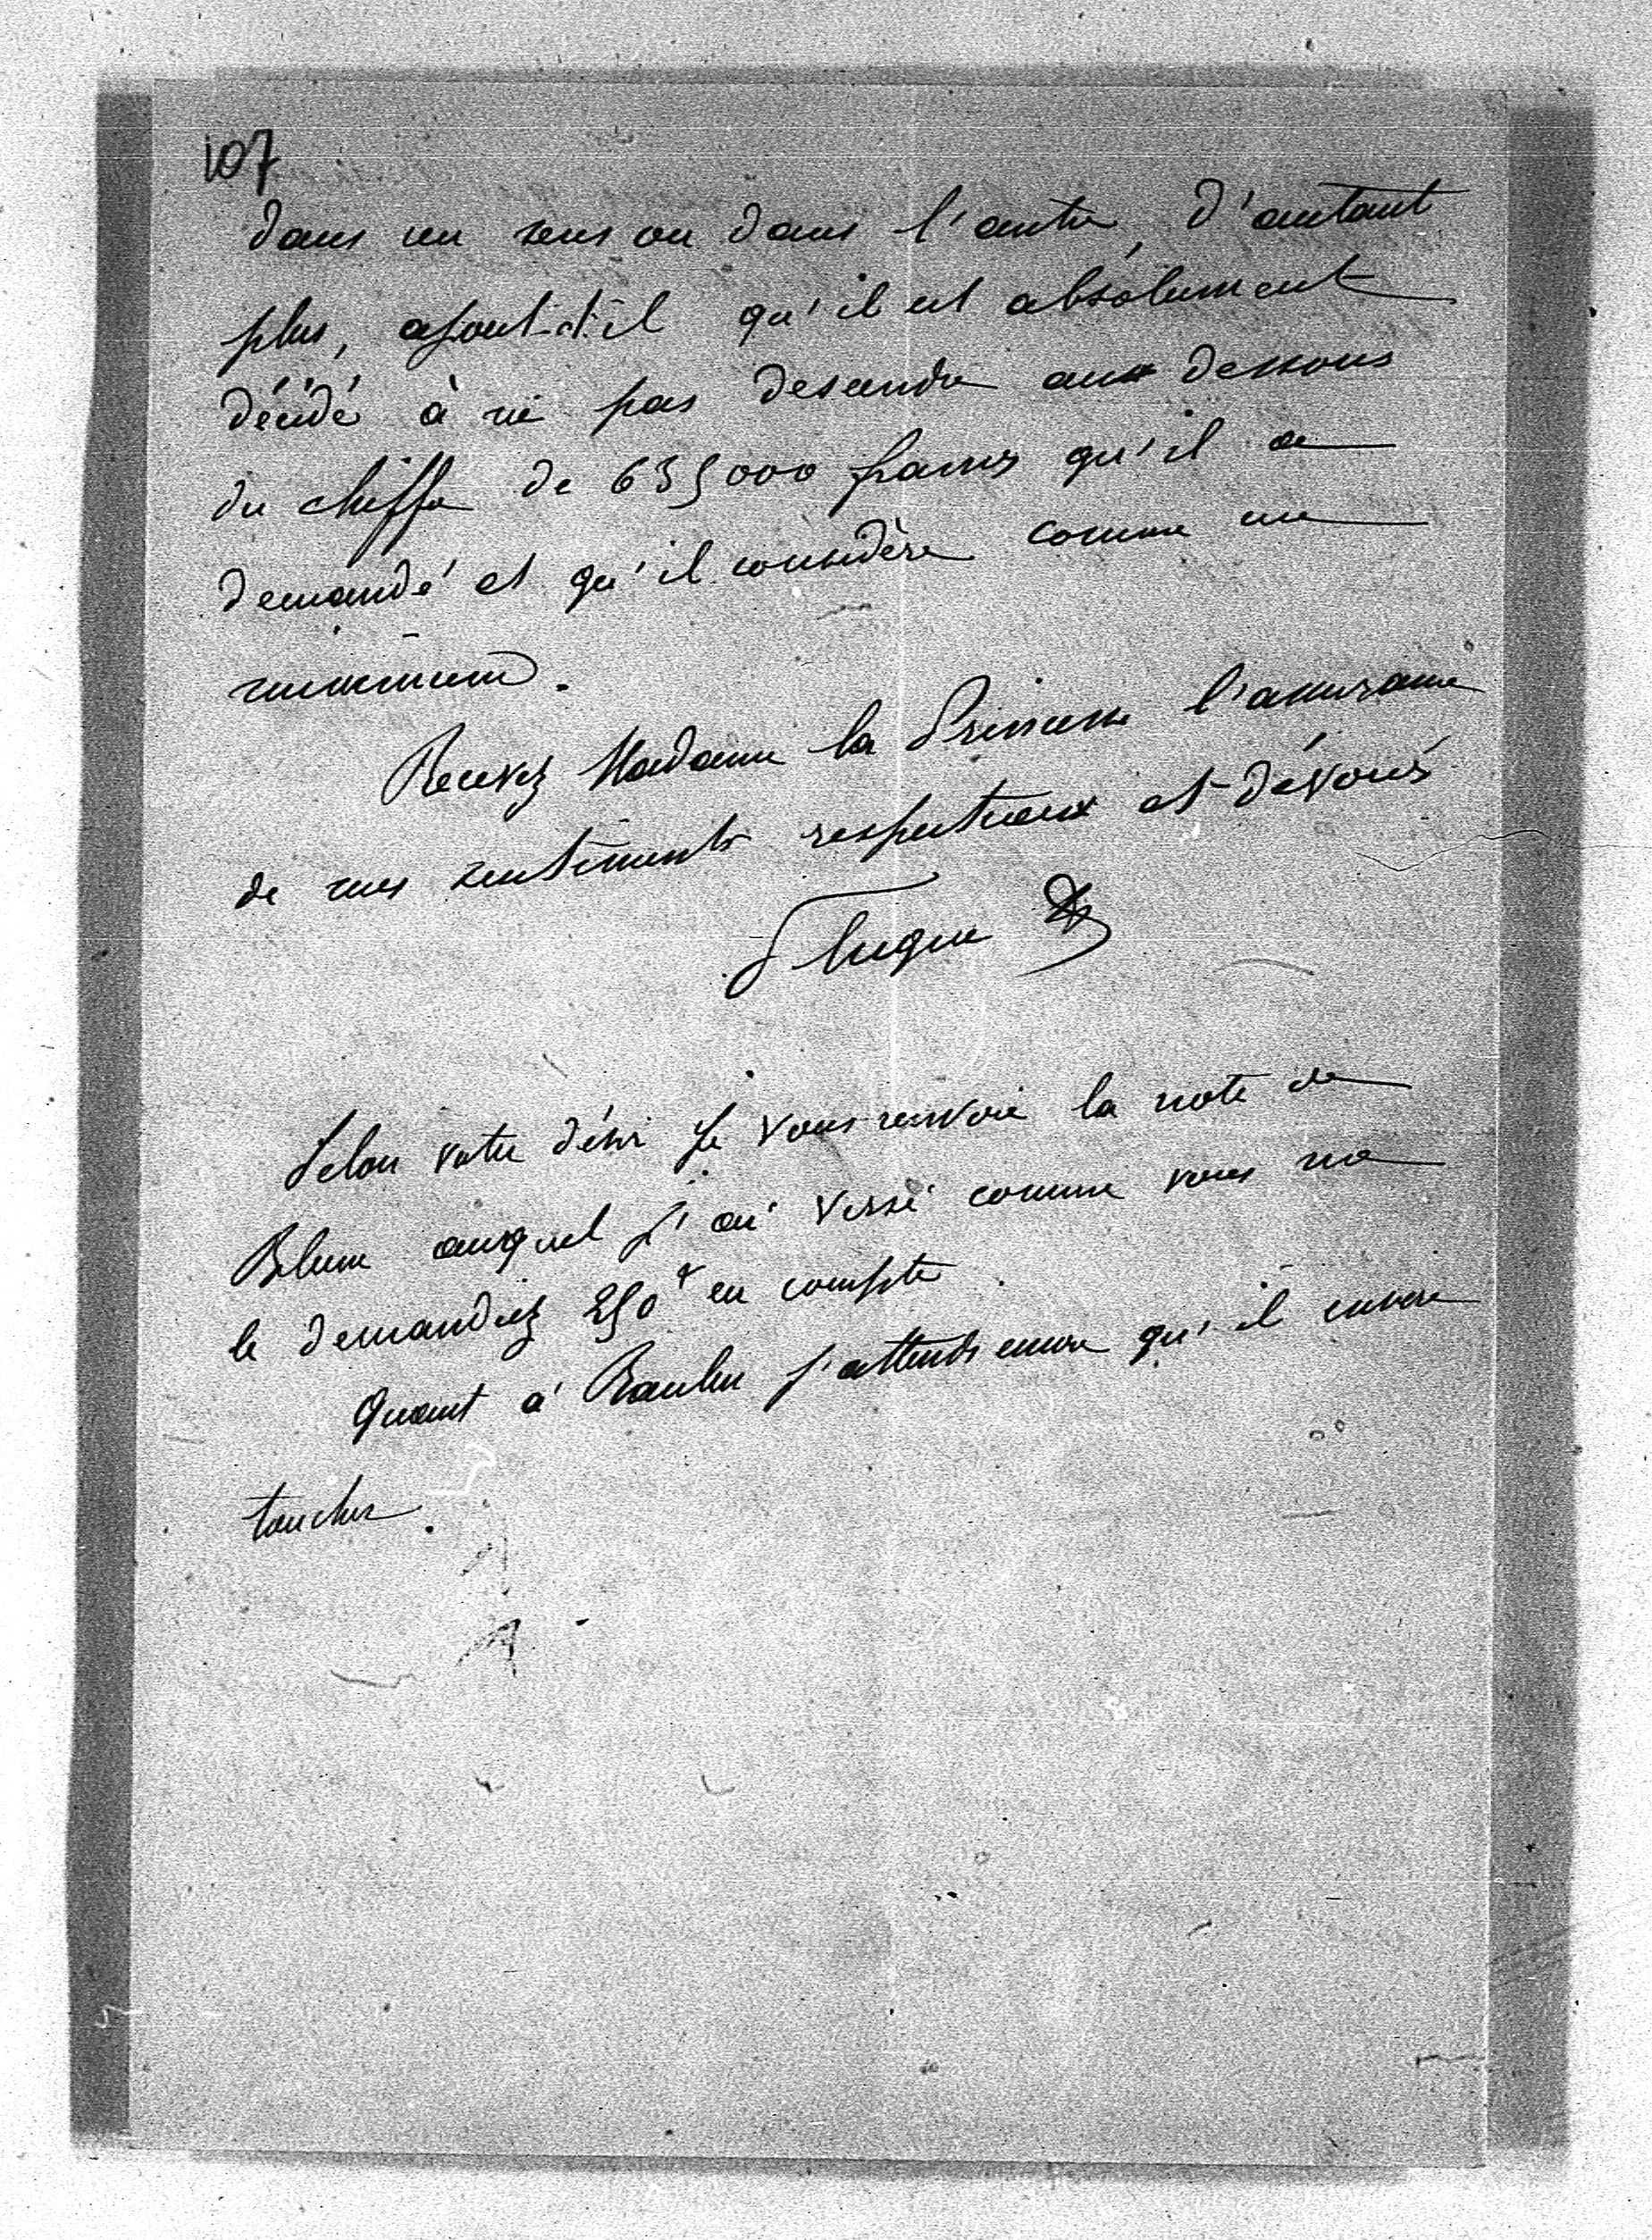 107
dans un sens ou dans l'autre, d'autant
plus, ajout-t-il qu'il est absolument
décidé à ne pas descendre au dessous
du chiffre de 635000 francs qu'il a
demandé et qu'il considère comme un
minimum.
Recevez Madame la Princesse l'assurance
de mes sentiments respectueux et dévoués
Selon votre désir je vous renvoie la note de
Blum auquel j'ai versé comme vous me
le demandiez 250f en compte.
Quant à j'attends encore qu'il envoie
toucher.